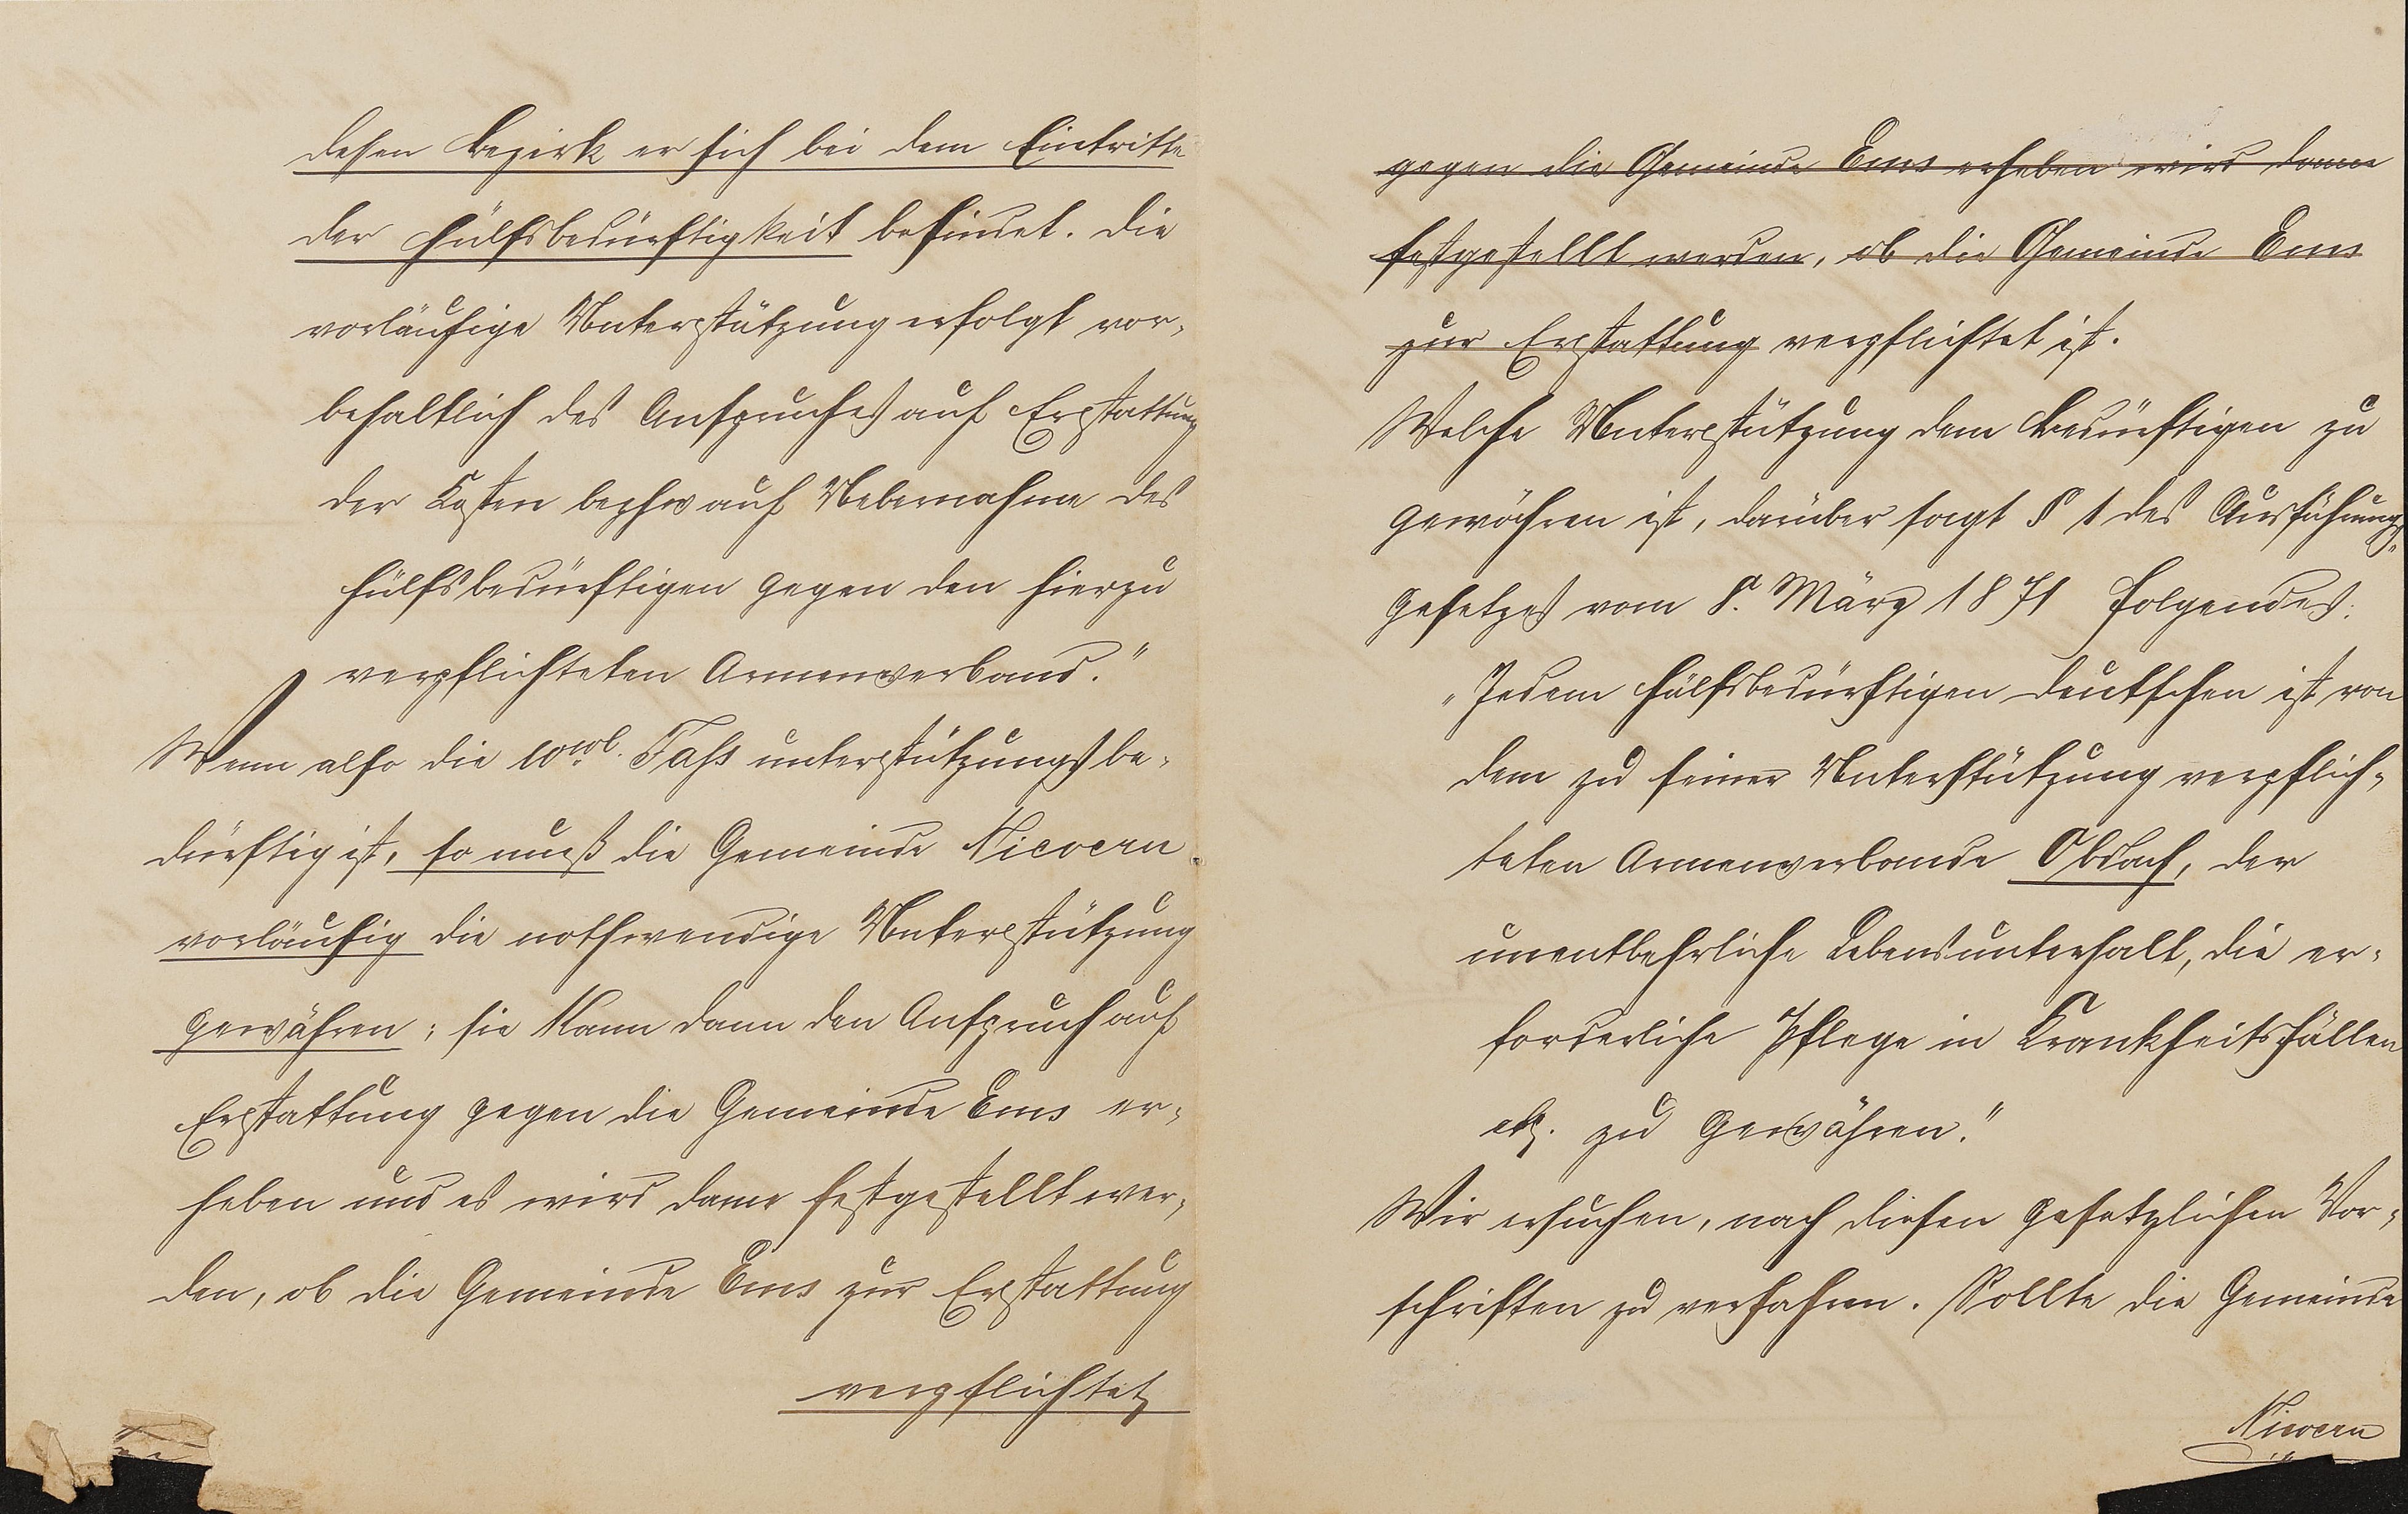 dessen Bezirk er sich bei dem Eintritte
der Hülfsbedürftigkeit befindet. Die
vorläufige Unterstützung erfolgt vor-
behaltlich des Anspruches auf Erstattung
der Kosten bezhw auf Uebernahme des
Hülfsbedürftigen gegen den hierzu
verpflichteten Armenverband."
Wenn also die Wwe. Faß unterstützungsbe-
dürftig ist, so muß die Gemeinde Nievern
vorläufig die nothwendige Unterstützung
gewähren; sie kann dann den Anspruch auf
Erstattung gegen die Gemeinde Ems er-
heben und es wird dann festgestellt wer-
den, ob die Gemeinde Ems zur Erstattung
verpflichtet
gegen die Gemeinde Ems erheben wird dann
festgestellt werden, ob die Gemeinde Ems
zur Erstattung verpflichtet ist.
Welche Unterstützung dem Bedürftigen zu
gewähren ist, darüber sagt § 1 des Ausführungs-
gesetzes vom 8. März 1871 Folgendes:
"Jedem Hülfsbedürftigen Deutschen ist von
dem zu seiner Unterstützung verpflich-
teten Armenverbande Obdach, der
unentbehrliche Lebensunterhalt, die er-
forderliche Pflege in Krankheitsfällen
etc. zu gewähren."
Wir ersuchen, nach diesen gesetzlichen Vor-
schriften zu verfahren. Sollte die Gemeinde
Nievern